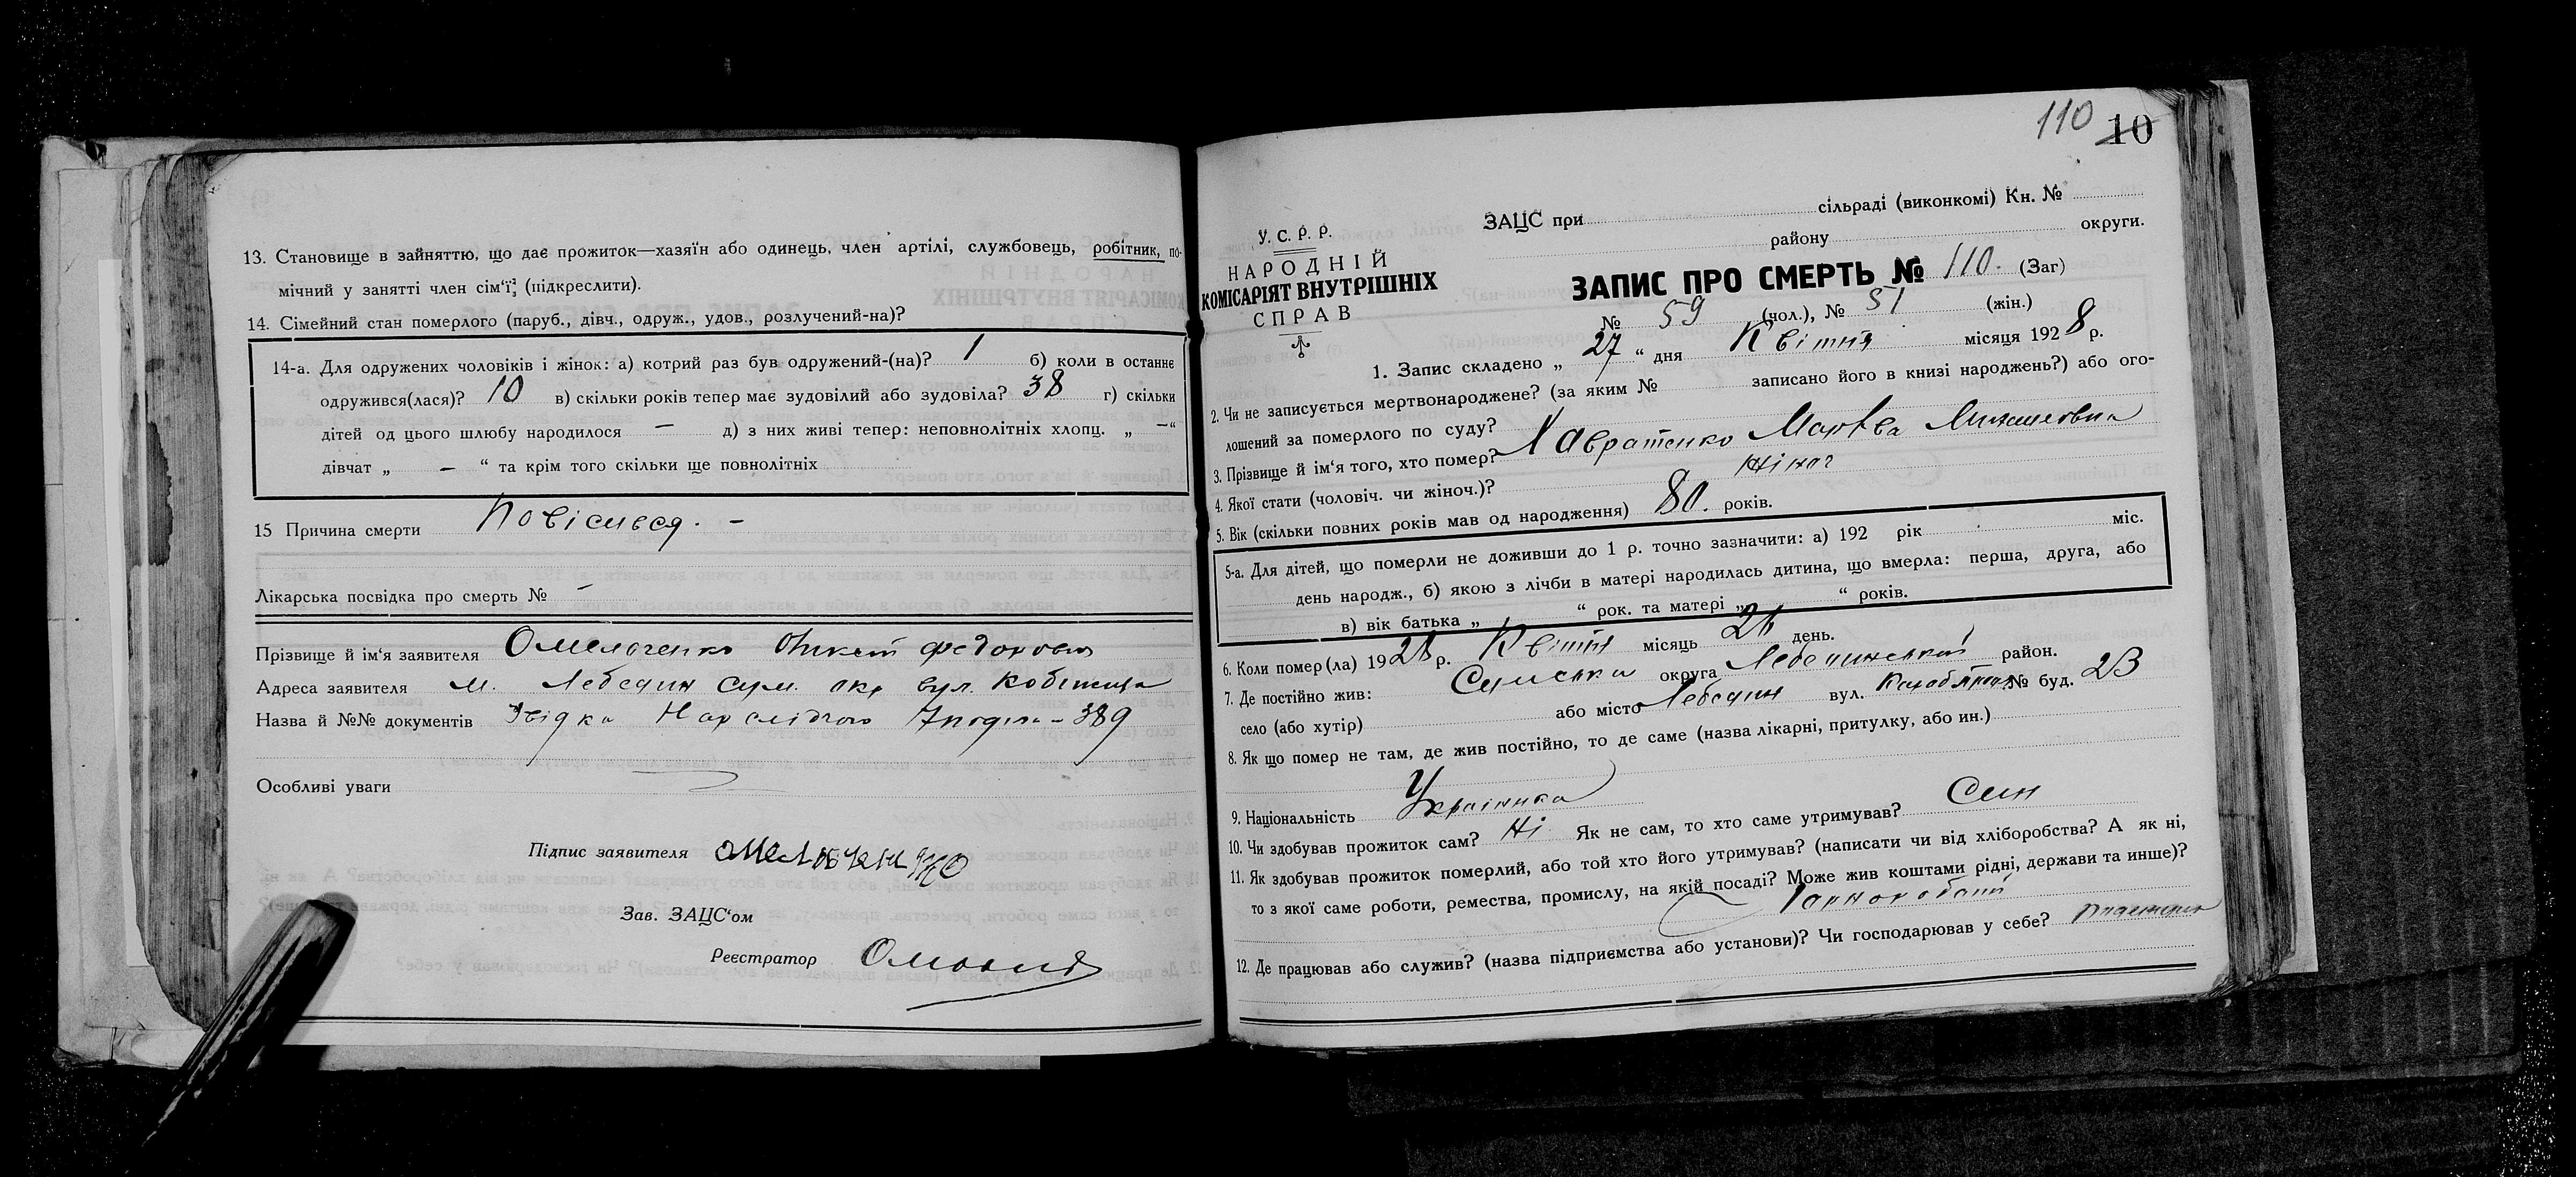 13. Становище в зайняттю, що дає прожиток—хазяїн або одинець, член артілі, службовець, робітник, по-
мічний у занятті член сім'ї; (підкреслити).
14. Сімейний стан померлого (паруб., дівч., одруж., удов., розлучений-на)?
14-а. Для одружених чоловіків і жінок: а) котрий раз був одружений-(на)? 1 б) коли в останнє
одружився(лася)? 10 в) скільки років тепер має зудовілий або зудовіла? 38 г) скільки
дітей од цього шлюбу народилося — д) з них живі тепер: неповнолітніх хлопц. „ — “
дівчат „ — “ та крім того скільки ще повнолітніх
15 Причина смерти Повісився. —
Лікарська посвідка про смерть № —
Прізвище й ім'я заявителя Омельченко Федорович
Адреса заявителя м. Лебедин Сум. окр вул. Кобижча
Назва й №№ документів Звідка Нар слідчого 389
Особливі уваги
Підпис заявителя омельченко
Зав. ЗАЦС'ом
Реєстратор
110 10
У. С. Р. Р.
НАРОДНІЙ
КОМІСАРІЯТ ВНУТРІШНІХ
СПРАВ
ЗАЦС при сільраді (виконкомі) Кн. №
району округи.
ЗАПИС ПРО СМЕРТЬ № 110. (Заг)
№ 59 (чол.), № 51 (жін.)
1. Запис складено „ 27 “ дня Квітня місяця 1928 р.
2. Чи не записується мертвонароджене? (за яким № записано його в книзі народжень?) або ого-
лошений за померлого по суду?
3. Прізвище й ім'я того, хто помер? Хавратенко
4. Якої стати (чоловіч. чи жіноч.)? жіноч
5. Вік (скільки повних років мав од народження) 80. років.
5-а. Для дітей, що померли не доживши до 1 р. точно зазначити: а) 192 рік міс.
день народж., б) якою з лічби в матері народилась дитина, що вмерла: перша, друга, або
в) вік батька „ “ рок. та матері „ “ років.
6. Коли помер(ла) 1928 р. Квітня місяць 26 день.
7. Де постійно жив: Сумська округа Лебединський район.
село (або хутір) або місто Лебедин вул. № буд. 23
8. Як що помер не там, де жив постійно, то де саме (назва лікарні, притулку, або ин.)
9. Національність Українка
10. Чи здобував прожиток сам? Ні Як не сам, то хто саме утримував? Син
11. Як здобував прожиток померлий, або той хто його утримував? (написати чи від хліборобства? А як ні,
то з якої саме роботи, ремества, промислу, на якій посаді? Може жив коштами рідні, держави та инше)?
Чорноробочий
12. Де працював або служив? (назва підприємства або установи)? Чи господарював у себе?